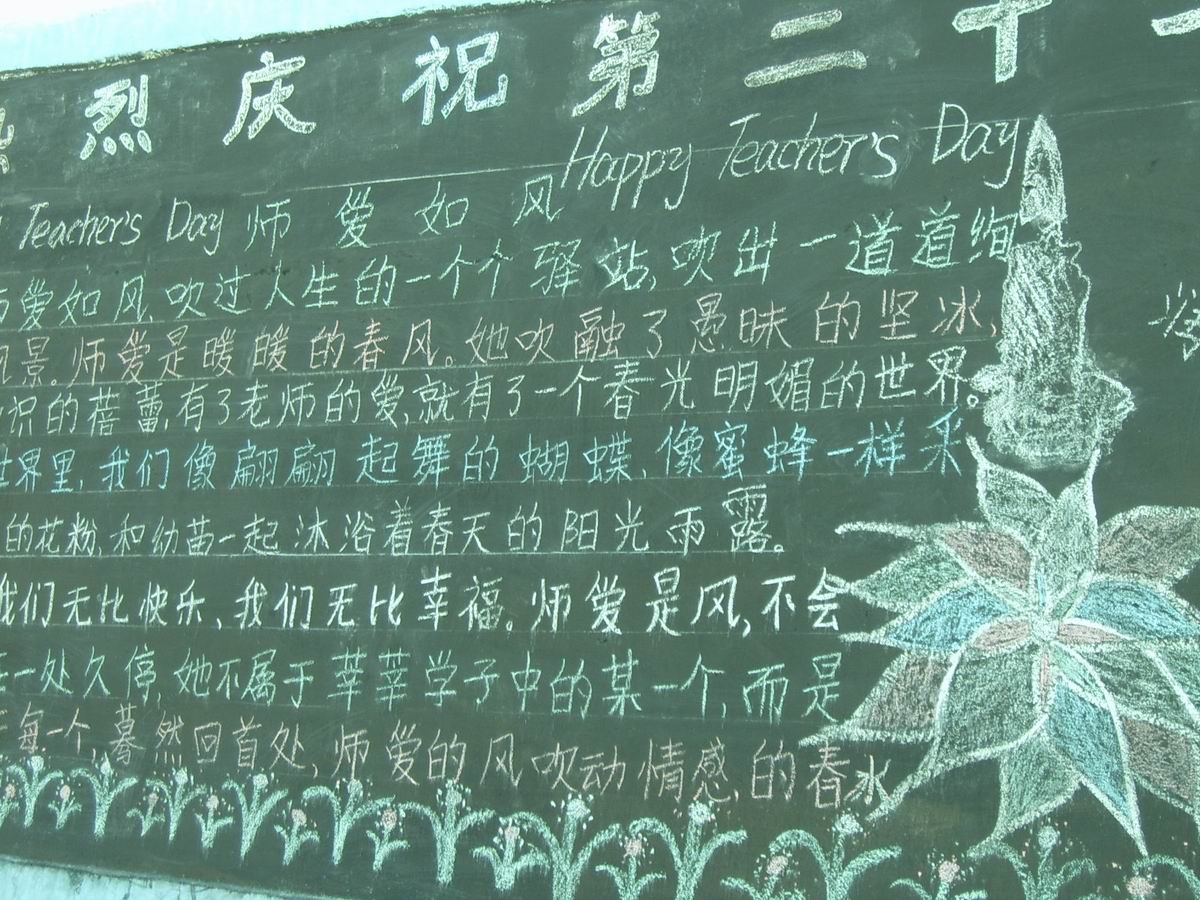 烈庆祝第二十一
Happy Teacher's Day
Teacher's Day 师爱如风
爱如风,吹过人生的一个个驿站,吹出一道道绚
风景。师爱是暖暖的春风。她吹融了愚昧的坚冰,
识的蓓蕾,有了老师的爱,就有了一个春光明媚的世界。
世界里,我们像翩翩起舞的蝴蝶,像蜜蜂一样采
的花粉,和幼苗一起沐浴着春天的阳光雨露。
我们无比快乐、我们无比幸福。师爱是风,不会
一处久停,她不属于莘莘学子中的某一个,而是
每一个,蓦然回首处,师爱的风吹动情感的春水